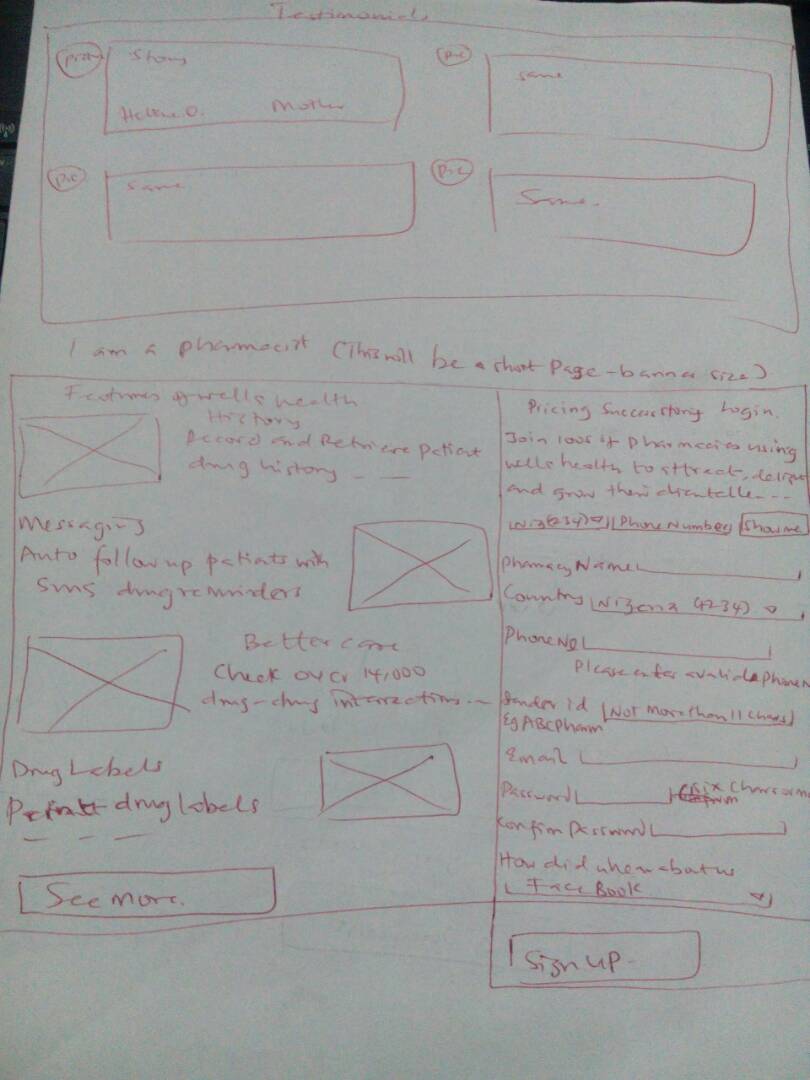 Testimonials
Story
Mother
Pic
same
Pic
same
Pic
Same.
I am a pharmacist (This will be a short Page - banner size)
Features of wells health
History
Record and Retrieve patient
drug history - -
Messaging
Auto follow up patients with
sms drug reminders
Better care
Check over 14,000
drug-drug interactions --
Drug Labels
drug labels
- - -
See more.
Pricing Success story Login.
Join 100s of pharmacies using
wells health to attract, delight
and grow their clientelle ----
Nig(234) Phone Number Show me
Pharmacy Name
Country Nigeria (234)
Phone No
Please enter a valid phone N
Sender id (Not more than 11 chars)
Eg ABCpharm
Email
Password
Confirm Password
How did u hear about us
FaceBook
Sign up.